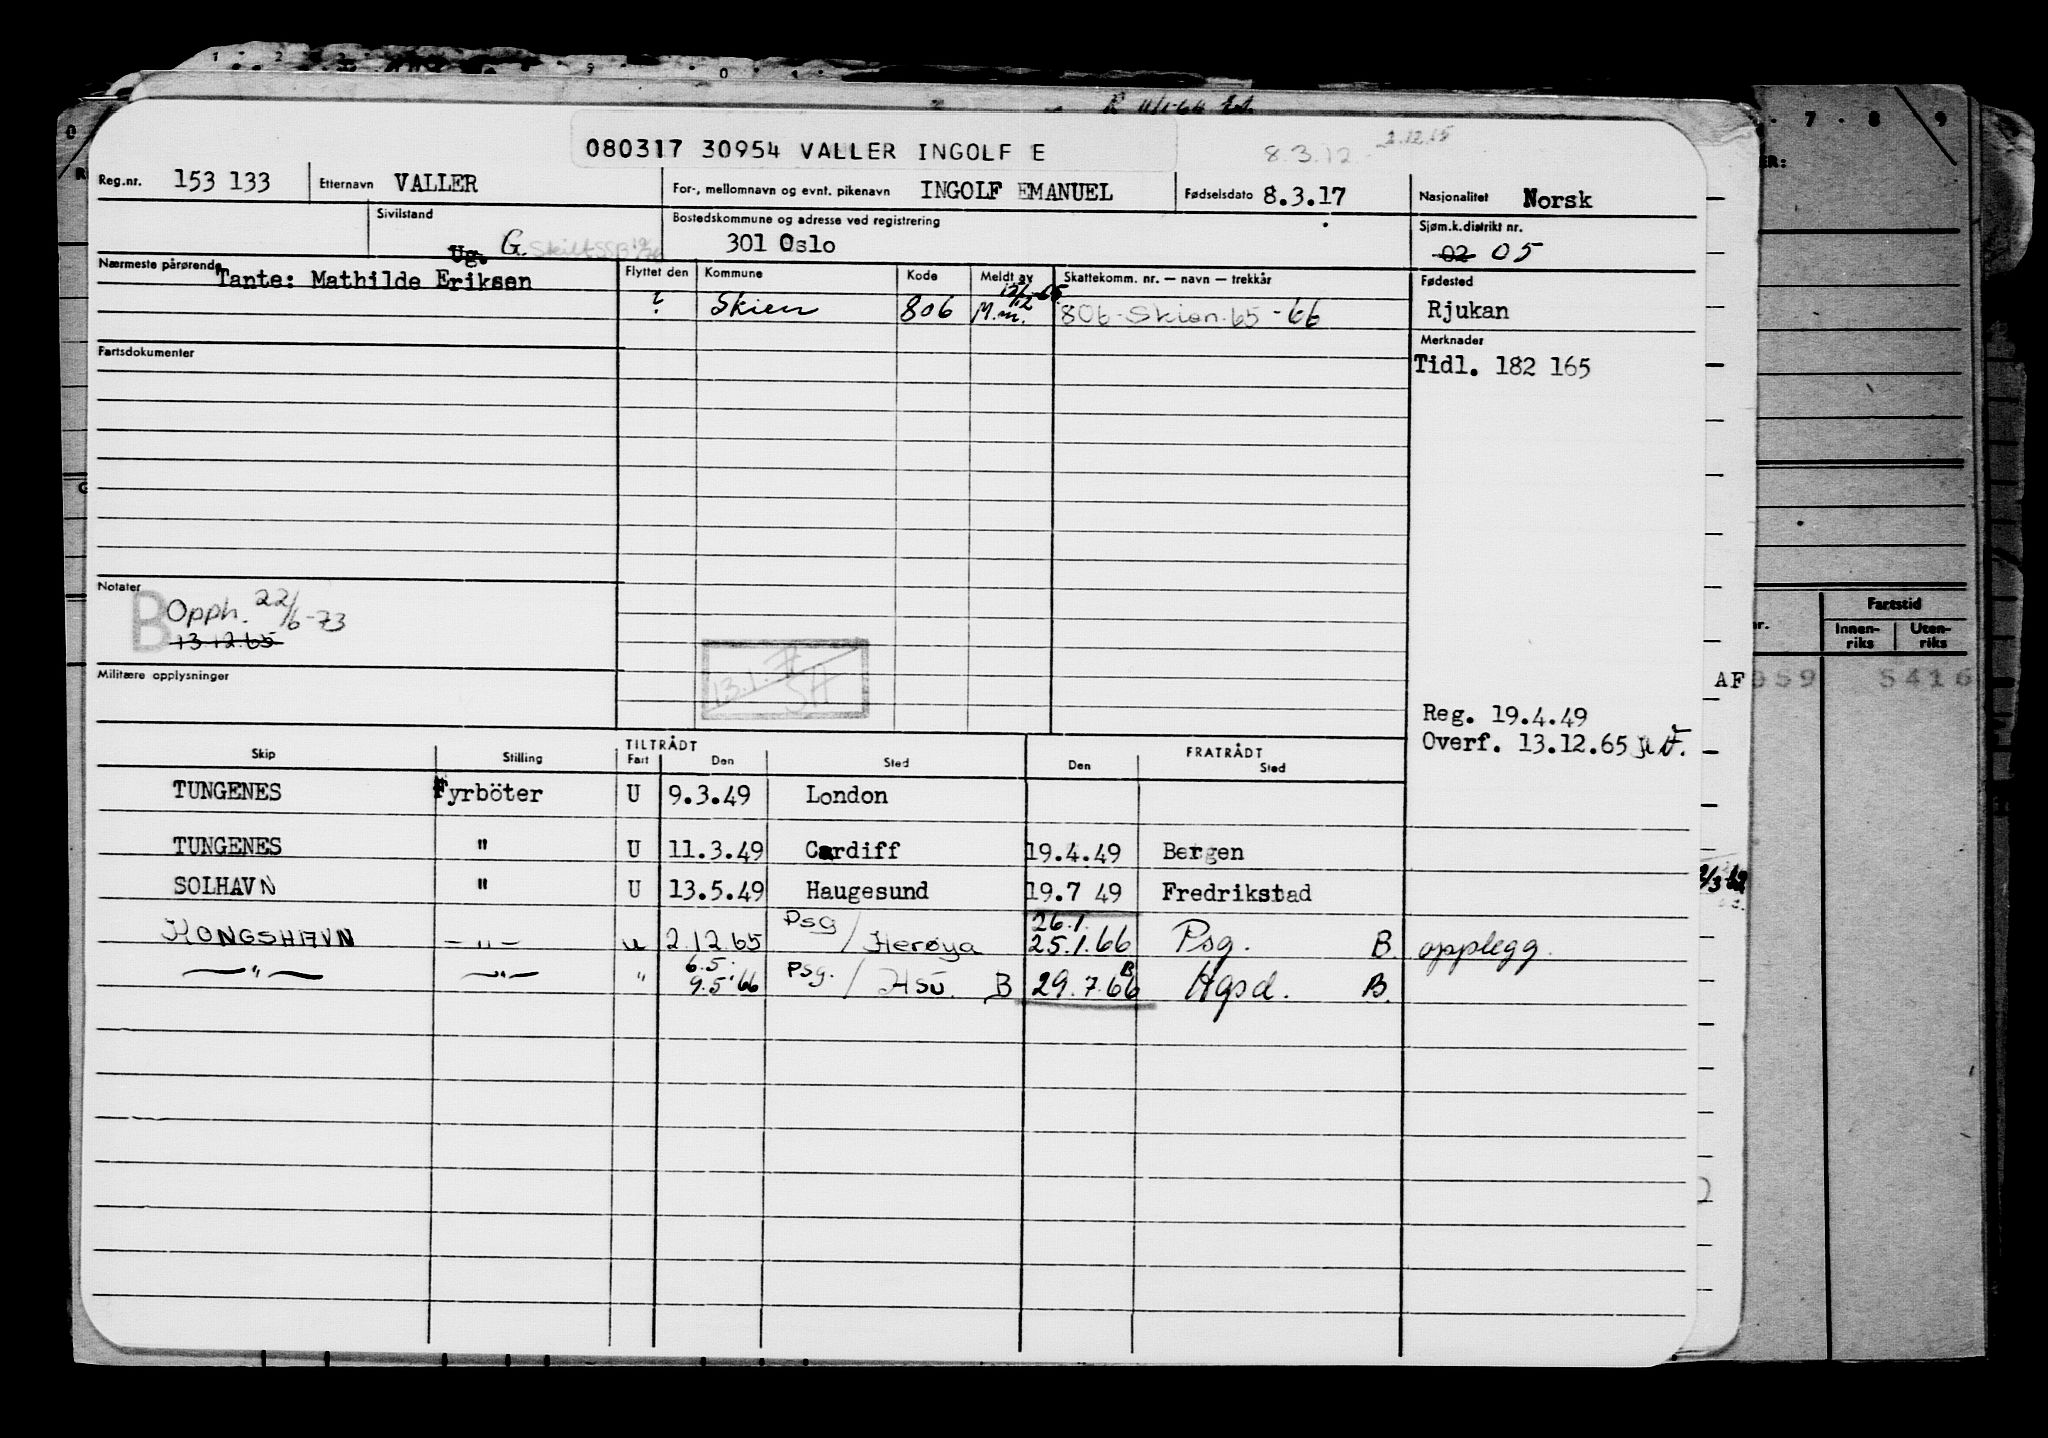 080317 30954 VALLER INGOLF E
8.3.12
2.12.65
Reg.nr. 153 133 Etternavn VALLER For-, mellomnavn og evnt. pikenavn INGOLF EMANUEL Fødselsdato 8.3.17 Nasjonalitet Norsk
Sivilstand Ug. G. Bostedskommune og adresse ved registrering 301 Oslo Sjøm.k.distrikt nr. 02 05
Nærmeste pårørende Tante: Mathilde Eriksen
Flyttet den Kommune Kode Meldt av Skattekomm. nr. — navn — trekkår Fødested
? Skien 806 M.m. 806-Skien-65-66 Rjukan
Fartsdokumenter Merknader
Tidl. 182 165
Notater
B Opph. 22/6-73
13.12.65
Militære opplysninger
AF 5416
Reg. 19.4.49
Overf. 13.12.65
Fartstid
Innen-riks Uten-riks
Skip Stilling TILTRÅDT FRATRÅDT
Fart Den Sted Den Sted
TUNGENES Fyrböter U 9.3.49 London
TUNGENES " U 11.3.49 Cardiff 19.4.49 Bergen
SOLHAVN " U 13.5.49 Haugesund 19.7 49 Fredrikstad
26.1.
KONGSHAVN -"- u 2.12.65 Psg/Herøya 25.1.66 Psg. B opplegg.
6.5.
-"- -"- " 9.5.66 psg./Hsü. B 29.7.66 B Hgsd. B.